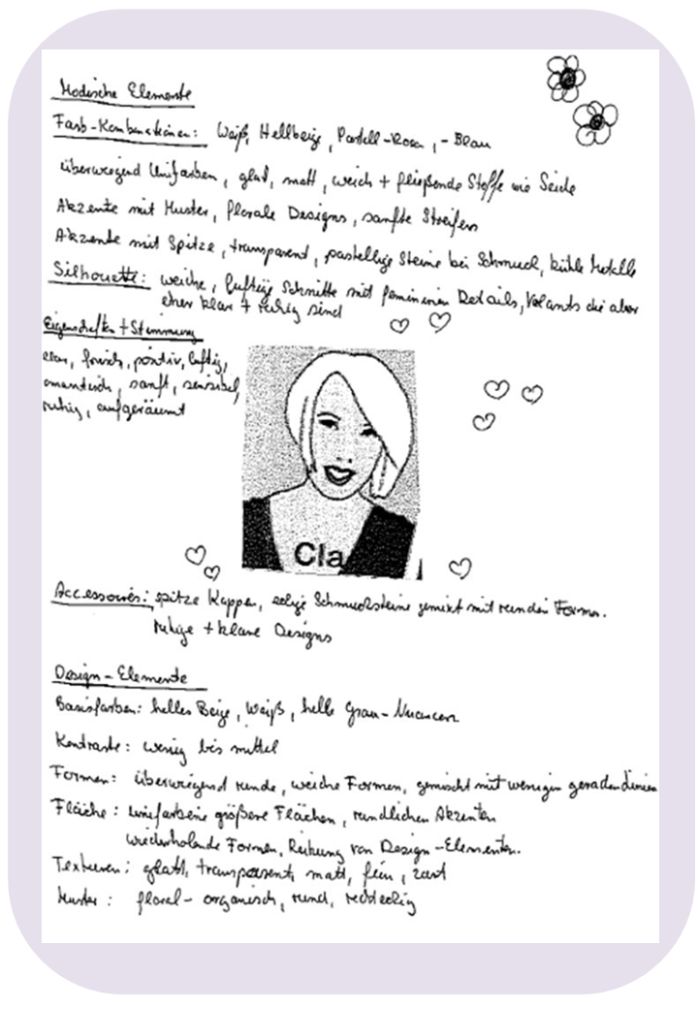 Modische Elemente
Farb-Kombinationen: Weiß, Hellbeige, Pastell-Rosa, -Blau
überwiegend Unifarben, glatt, matt, weich + fließende Stoffe wie Seide
Akzente mit Muster, florale Designs, sanfte Streifen
Akzente mit Spitze, transparent, pastellige Steine bei Schmuck, kühle Metalle
Silhouette: weiche, luftige Schnitte mit femininen Details, Volants die aber
eher klar + ruhig sind
Eigenschaften + Stimmung
klar, frisch, positiv, luftig,
omantisch, sanft, sensibel,
ruhig, aufgeräumt
Cla
Accessoires: spitze Kappen, eckige Schmucksteine gemixt mit runden Formen.
ruhige + klare Designs
Design-Elemente
Basisfarben: helles Beige, Weiß, helle Grau-Nuancen
Kontraste: wenig bis mittel
Formen: überwiegend runde, weiche Formen, gemischt mit wenigen geraden Linien
Fläche: unifarbene größere Flächen, rundlichen Akzenten
wiederholende Formen, Reihung von Design-Elementen.
Texturen: glatt, transparent, matt, fein, zart
Muster: floral- organisch, rund, rechteckig